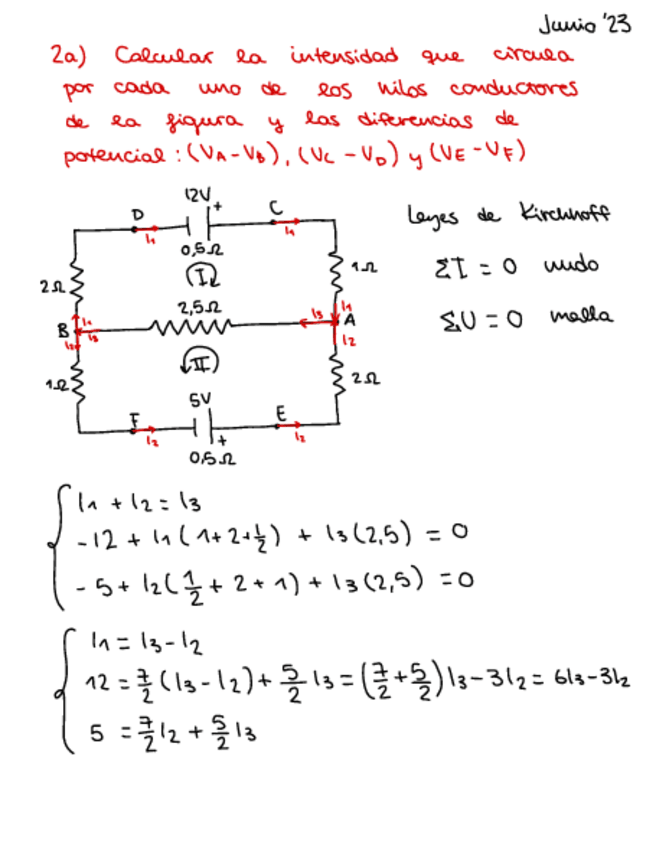 Junio '23
2a) Calcular la intensidad que circula
por cada uno de los hilos conductores
de la figura y las diferencias de
potencial : (VA - VB), (VC - VD) y (VE - VF)
12V
+
D
C
I1
I1
0,5Ω
I
1Ω
2Ω
2,5Ω
I3
I1
A
I2
B
I1
I3
I2
II
1Ω
2Ω
5V
F
E
I2
+
I2
0,5Ω
Leyes de Kirchhoff
ΣI = 0 nudo
ΣU = 0 malla
I1 + I2 = I3
-12 + I1 (1+2+1/2) + I3 (2,5) = 0
-5 + I2 (1/2 + 2 + 1) + I3 (2,5) = 0
I1 = I3 - I2
12 = 7/2 (I3 - I2) + 5/2 I3 = (7/2 + 5/2) I3 - 3I2 = 6I3 - 3I2
5 = 7/2 I2 + 5/2 I3